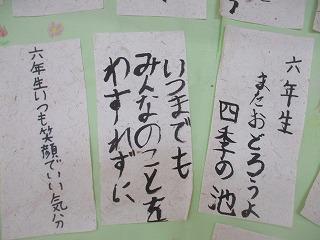 六年生
またおどろうよ
四季の池
いつまでも
みんなのことを
わすれずに
六年生いつも笑顔でいい気分